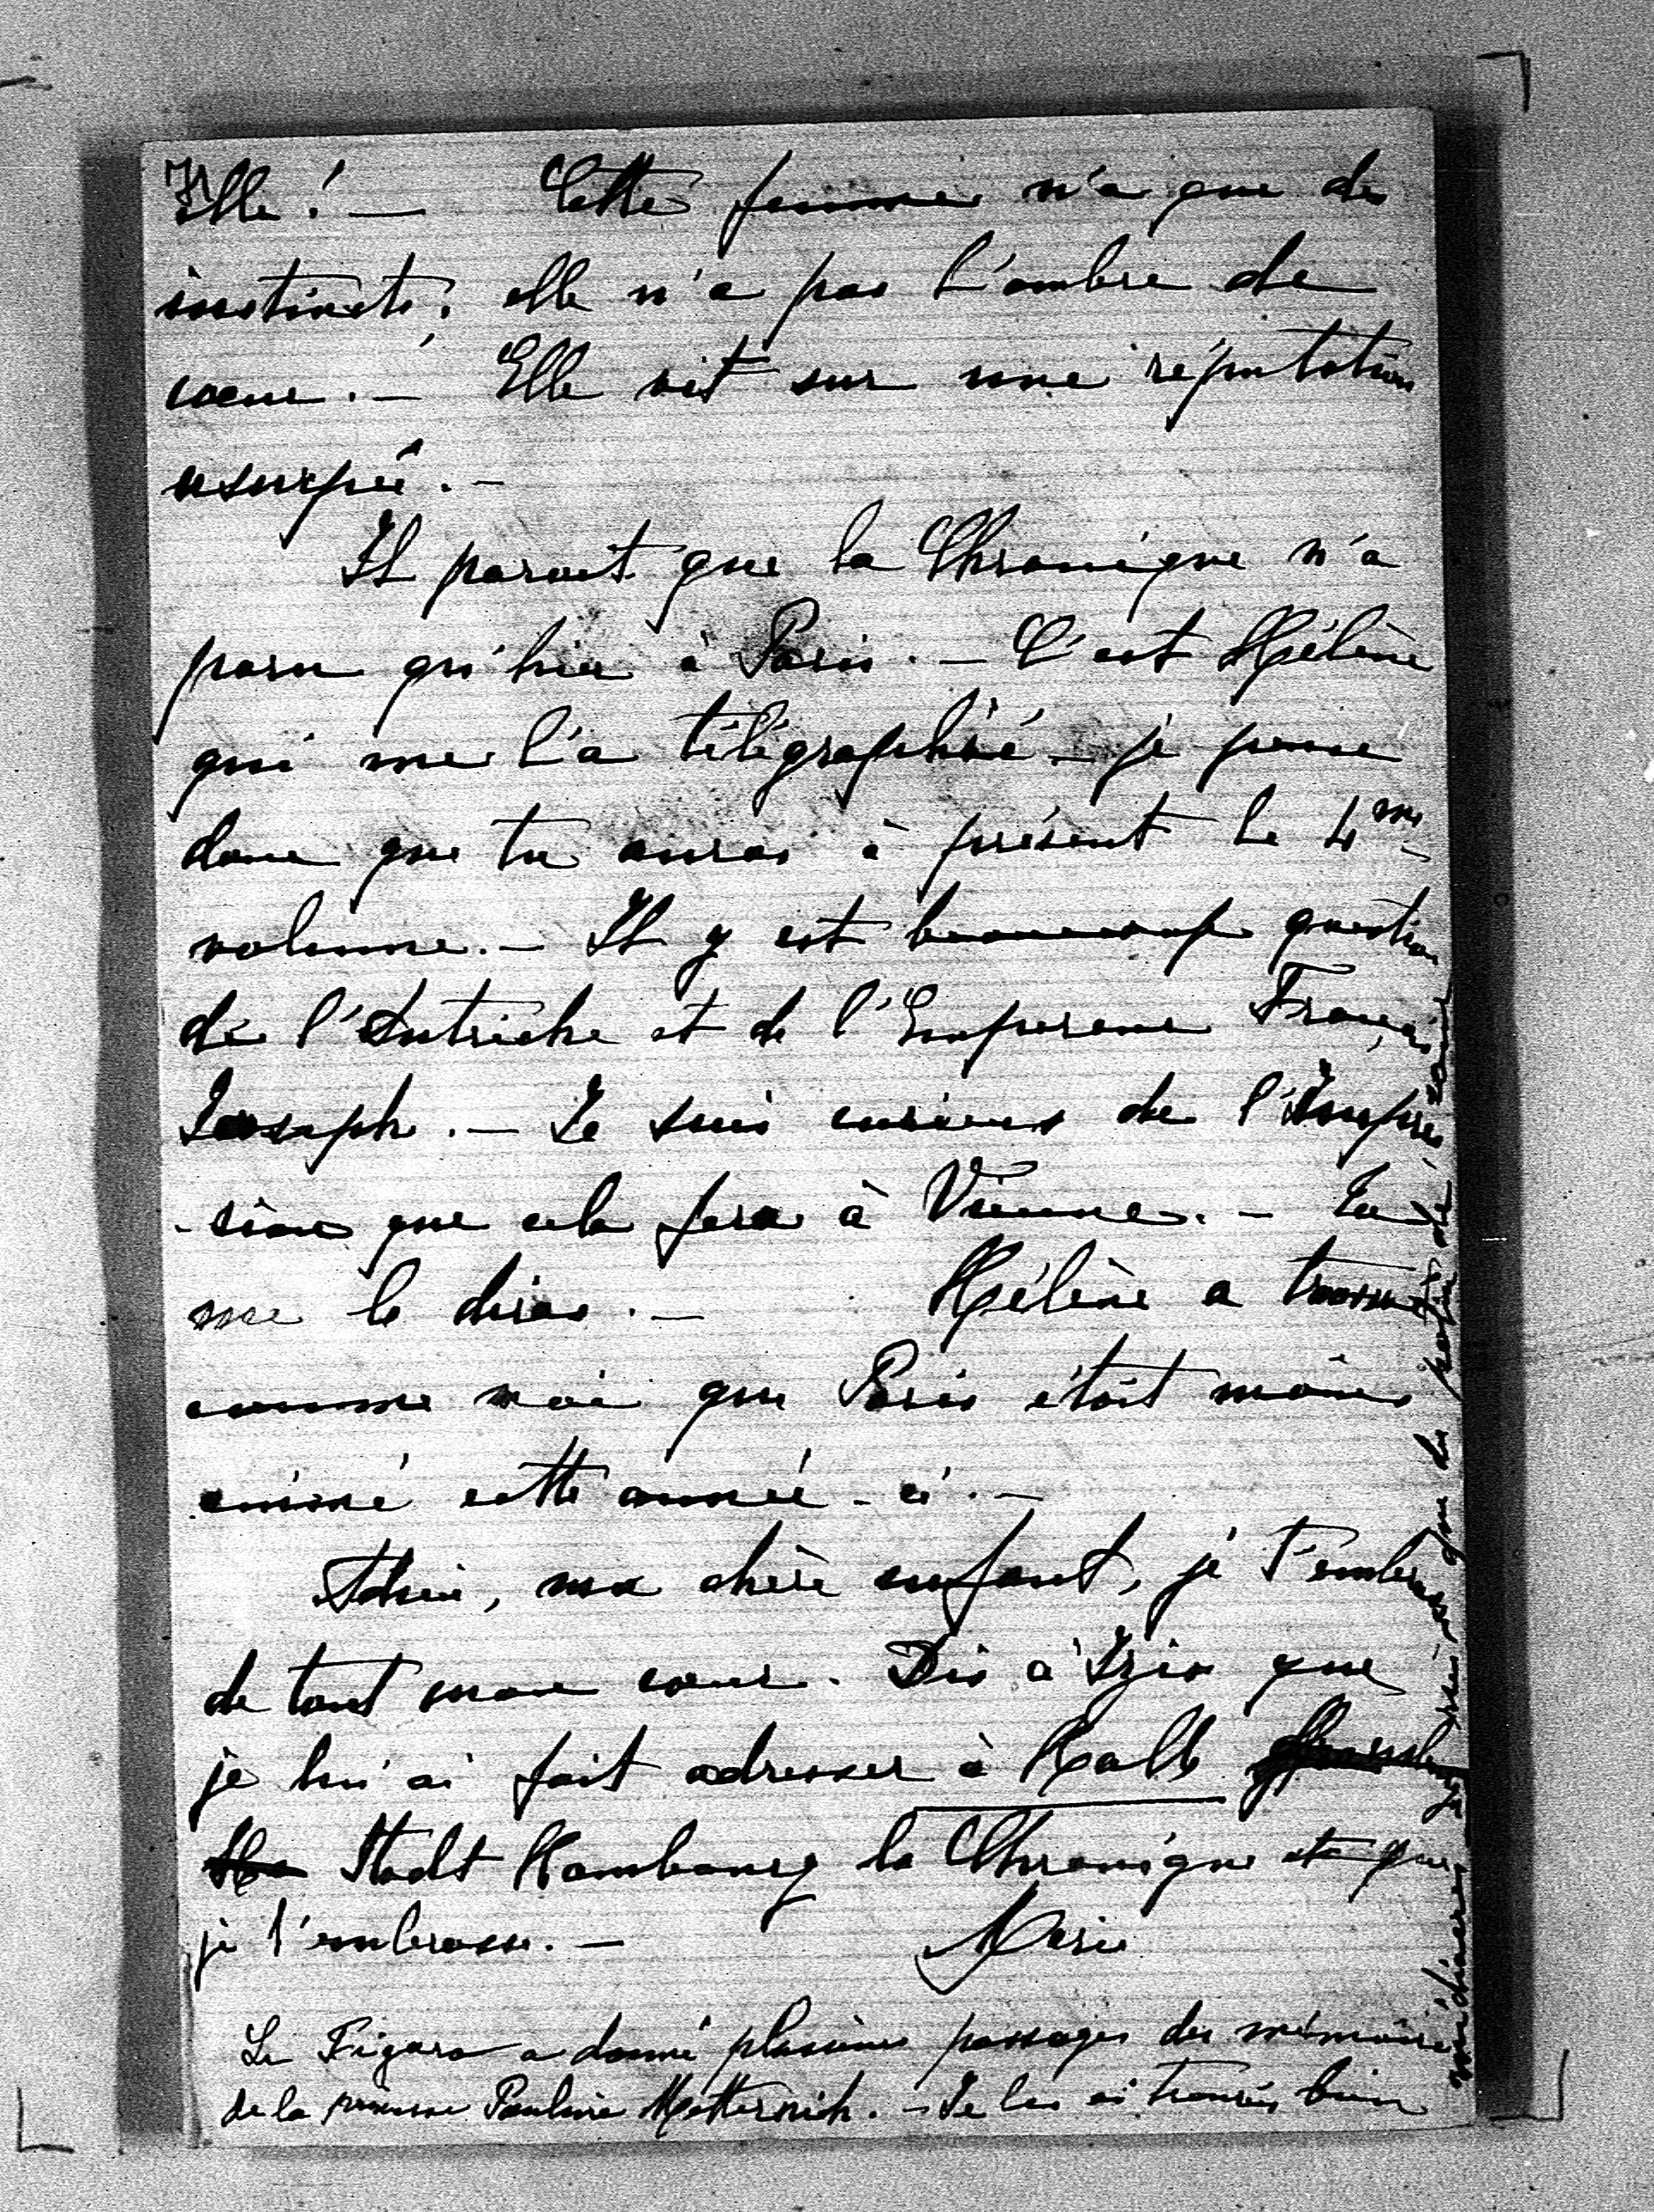 elle! — Cette femme n'a que des
instincts; elle n'a pas l'ombre de
cœur. — Elle vit sur une réputation
usurpée. —
Il parait que la Chronique n'a
paru qu'hier à Paris. — C'est Hélène
qui me l'a télégraphié — je pense
donc que tu auras à présent le 4me
volume. — Il y est beaucoup question
de l'Autriche et de l'Empereur François
Joseph. — Je suis curieux de l'Impres
-sion que cela fera à Vienne. — Tu
me le diras. — Hélène a trouvé
comme moi que Paris était moins
animé cette année-ci. —
Adieu, ma chère enfant, je t'embrasse
de tout mon cœur. Dis à que
je lui ai fait adresser à Kalb
Stadt Hambourg la Chronique et que
je l'embrasse. —
Le Figaro a donné plusieurs passages des mémoires
de la princesse Pauline Metternich. — Je les ai trouvés bien
médiocres que de